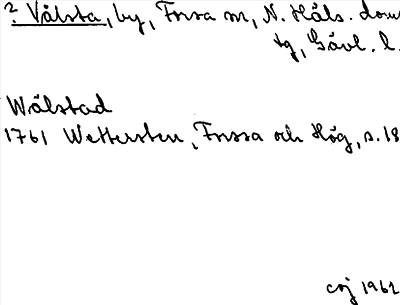 ? Vålsta, by, Forssa sn, N. Häls. doms
tg, Gävl. l.
Wålstad
1761 Wettersten, Forssa och Hög, s. 18
coj 1962